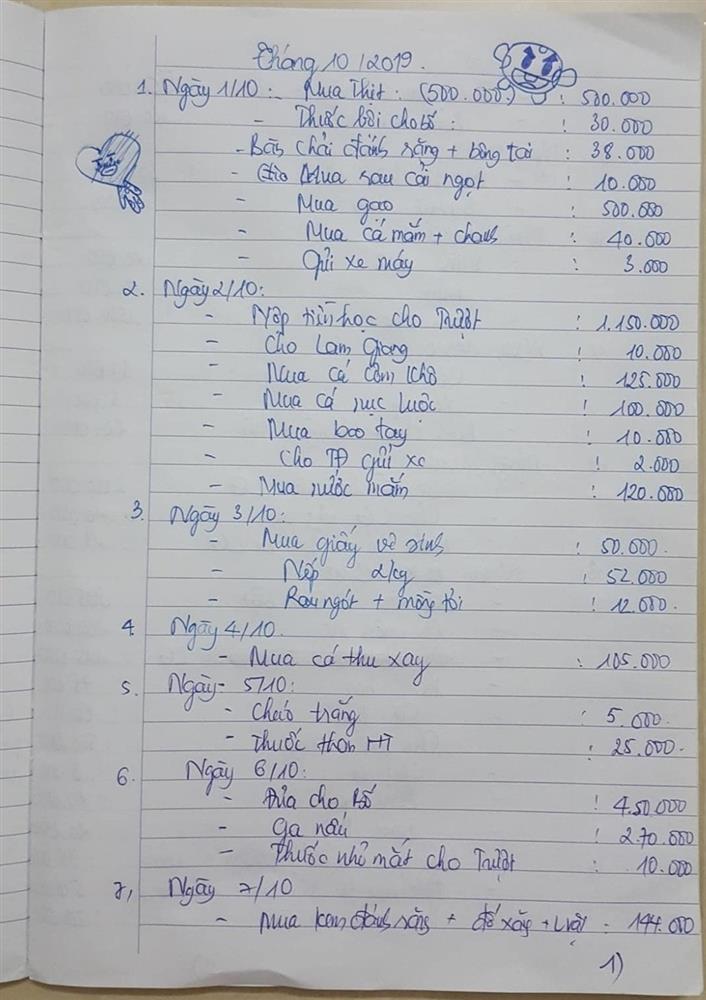 Tháng 10/2019.
1. Ngày 1/10: - Mua Thịt: (500.000) : 500.000
- Thuốc bôi cho bố : : 30.000
- Bàn chải đánh răng + bông tai : 38.000
- Mua rau cải ngọt : 10.000
- Mua gạo : 500.000
- Mua cá mắm + chanh : 40.000
- Gửi xe máy : 3.000
2. Ngày 2/10:
- Nộp tiền học cho : 1.150.000
- Cho Lam Giang : 10.000
- Mua cá cơm khô : 125.000
- Mua cá nục luộc : 100.000
- Mua bao tay : 10.000
- Cho TĐ gửi xe : 2.000
- Mua nước mắm : 120.000
3. Ngày 3/10:
- Mua giấy vệ sinh : 50.000.
- Nếp 2kg : 52.000
- Rau ngót + mồng tơi : 12.000.
4. Ngày 4/10.
- Mua cá thu xay : 105.000
5. Ngày - 5/10:
- Cháo trắng : 5.000.
- Thuốc HT : 25.000.
6. Ngày 6/10:
- Đưa cho Bố : 450.000
- Ga nấu : 270.000
- Thuốc nhỏ mắt cho : 10.000
7, Ngày 7/10
- Mua kem đánh răng + + : 144.000
1)